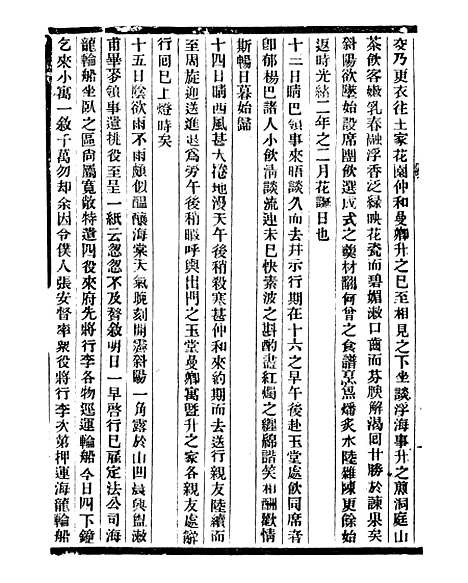 交乃更衣往王家花園仲和曼卿升之已至相見之下坐談浮海事升之煎洞庭山
茶飲客嫩乳春融浮香泛綠映花瓷而碧媚漱口齒而芬腴解渴回甘勝於諫果矣
斜陽欲墜始設席團飲選成式之羹材翻何曾之食譜烹燔炙水陸雜陳更餘始
返時光緒二年之二月花誕日也
十二日晴巴領事來晤談久而去幷示行期在十六之早午後赴玉堂處飲同席者
卽郁楊巴諸人小飲淸談流連未已快素波之斟酌盡紅燭之纏綿諧笑相酬歡情
斯暢日暮始歸
十四日晴西風甚大捲地漫天午後稍殺寒甚仲和來約期而去送行親友陸續而
至周旋迎送進退爲勞午後稍暇呼輿出門之玉堂曼卿寓暨升之家各親友處辭
行回已上燈時矣
十五日陰欲雨不雨頗似醞釀海棠天氣晚刻開霽斜陽一角露於山凹晨興盥漱
甫畢麥領事遣挑役至呈一紙云怱怱不及督敘明日一早啓行已雇定法公司海
龍輪船坐臥之區尚屬寬敞特遣四役來府先將行李各物逕運輪船今日四下鐘
乞來小寓一敘千萬勿却余因令僕人張安督率衆役將行李次第押運海龍輪船